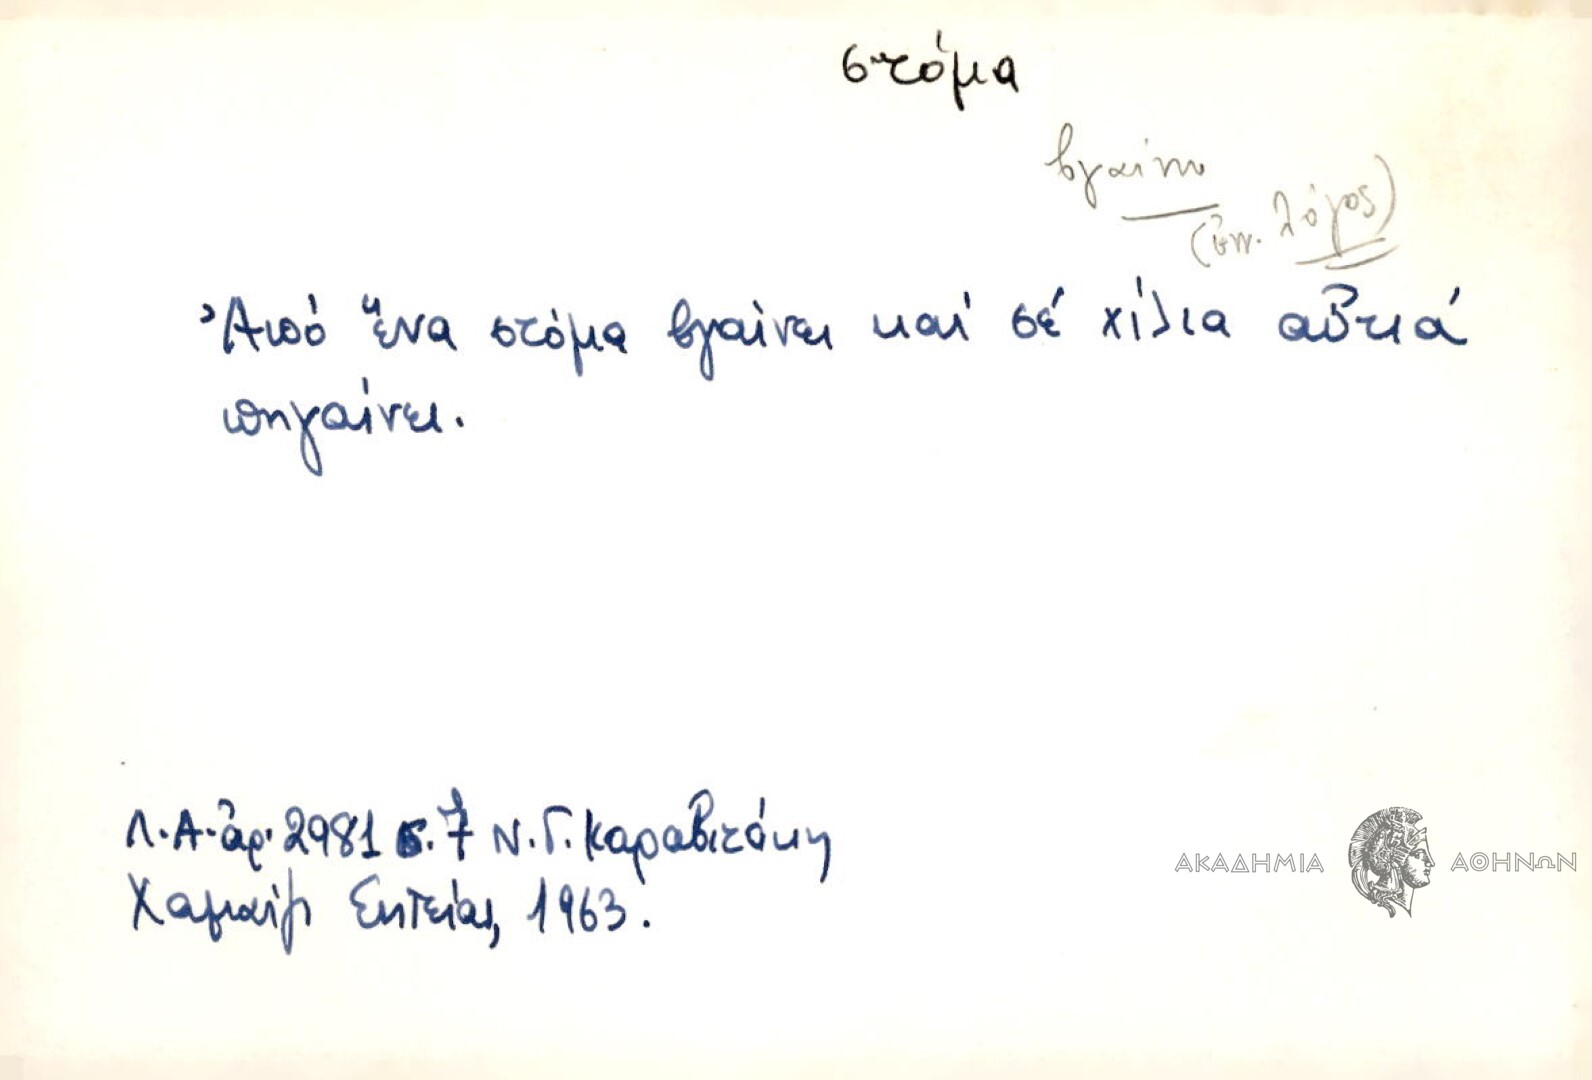 στόμα
βγαίνω
(ὑπ. λόγος)
Ἀπό ἕνα στόμα βγαίνει καί σέ χίλια αὐτιά
πηγαίνει.
Λ.Α. ἀρ. 2981 σ. 7 Ν. Γ. Καραβιτάκη
Χαμαίζι Σητείας, 1963.
ΑΚΑΔΗΜΙΑ ΑΘΗΝΩΝ